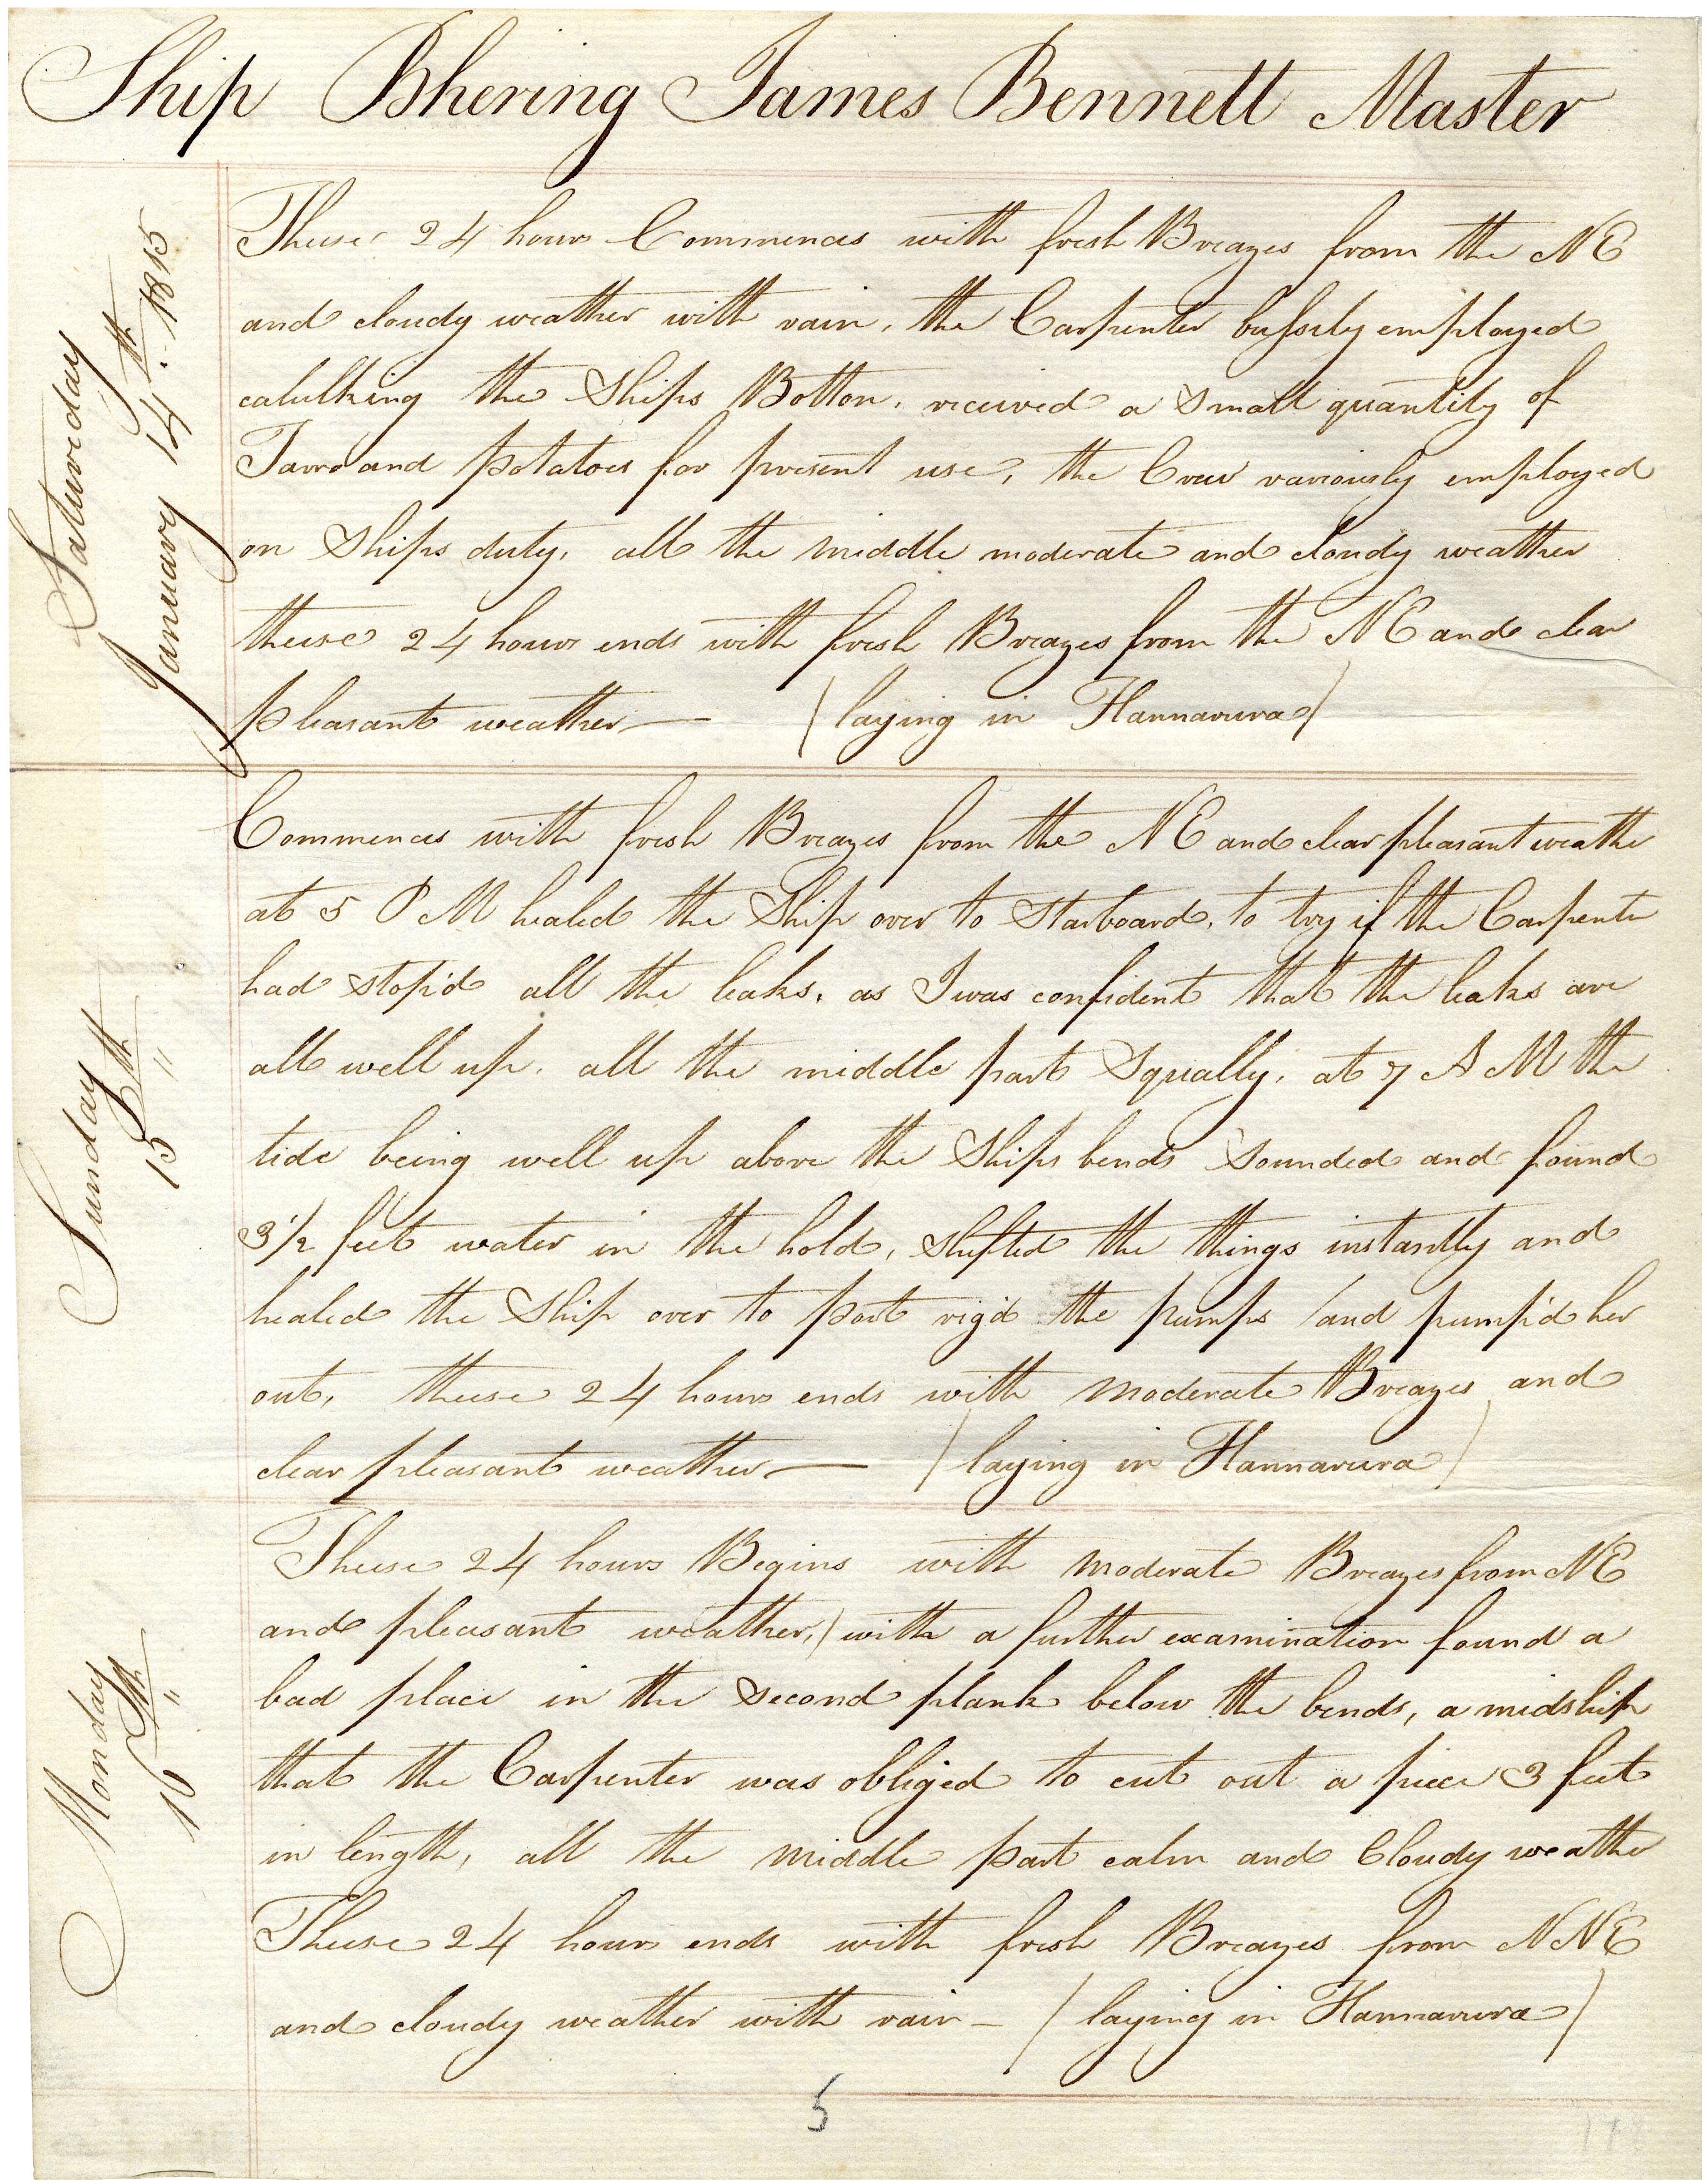 Ship Bhering James Bennett Master
Saturday
January 14th 1815
Theese 24 hours Commences with fresh Breazes from the NE
and cloudy weather with rain, the Carpenter bussily employed
calulking the Ships Botton, received a Small quantity of
Tarro and potatoes for present use, the Crew variously employed
on Ships duty, all the middle moderate and cloudy weather
theese 24 hours ends with fresh Breazes from the NE and clear
pleasant weather — (laying in Hannarura)
Sunday
15th "
Commences with fresh Breazes from the NE and clear pleasant weather
at 5 PM healed the Ship over to Starboard, to try if the Carpenter
had stop'd all the leaks, as I was confident that the leaks are
all well up, all the middle part Squally, at 7 AM the
tide being well up above the Ships bends Sounded and found
3 1/2 feet water in the hold, Shifted the things instantly and
healed the Ship over to port rig'd the pumps and pump'd her
out, theese 24 hours ends with moderate Breazes and
clear pleasant weather — (laying in Hannarura)
Monday
16th "
Theese 24 hours Begins with moderate Breazes from NE
and pleasant weather, with a further examination found a
bad place in the second plank below the bends, a midship
that the Carpenter was obliged to cut out a piece 3 feet
in length, all the middle part calm and Cloudy weather
Theese 24 hours ends with fresh Breazes from NNE
and cloudy weather with rain — (laying in Hannarura)
5